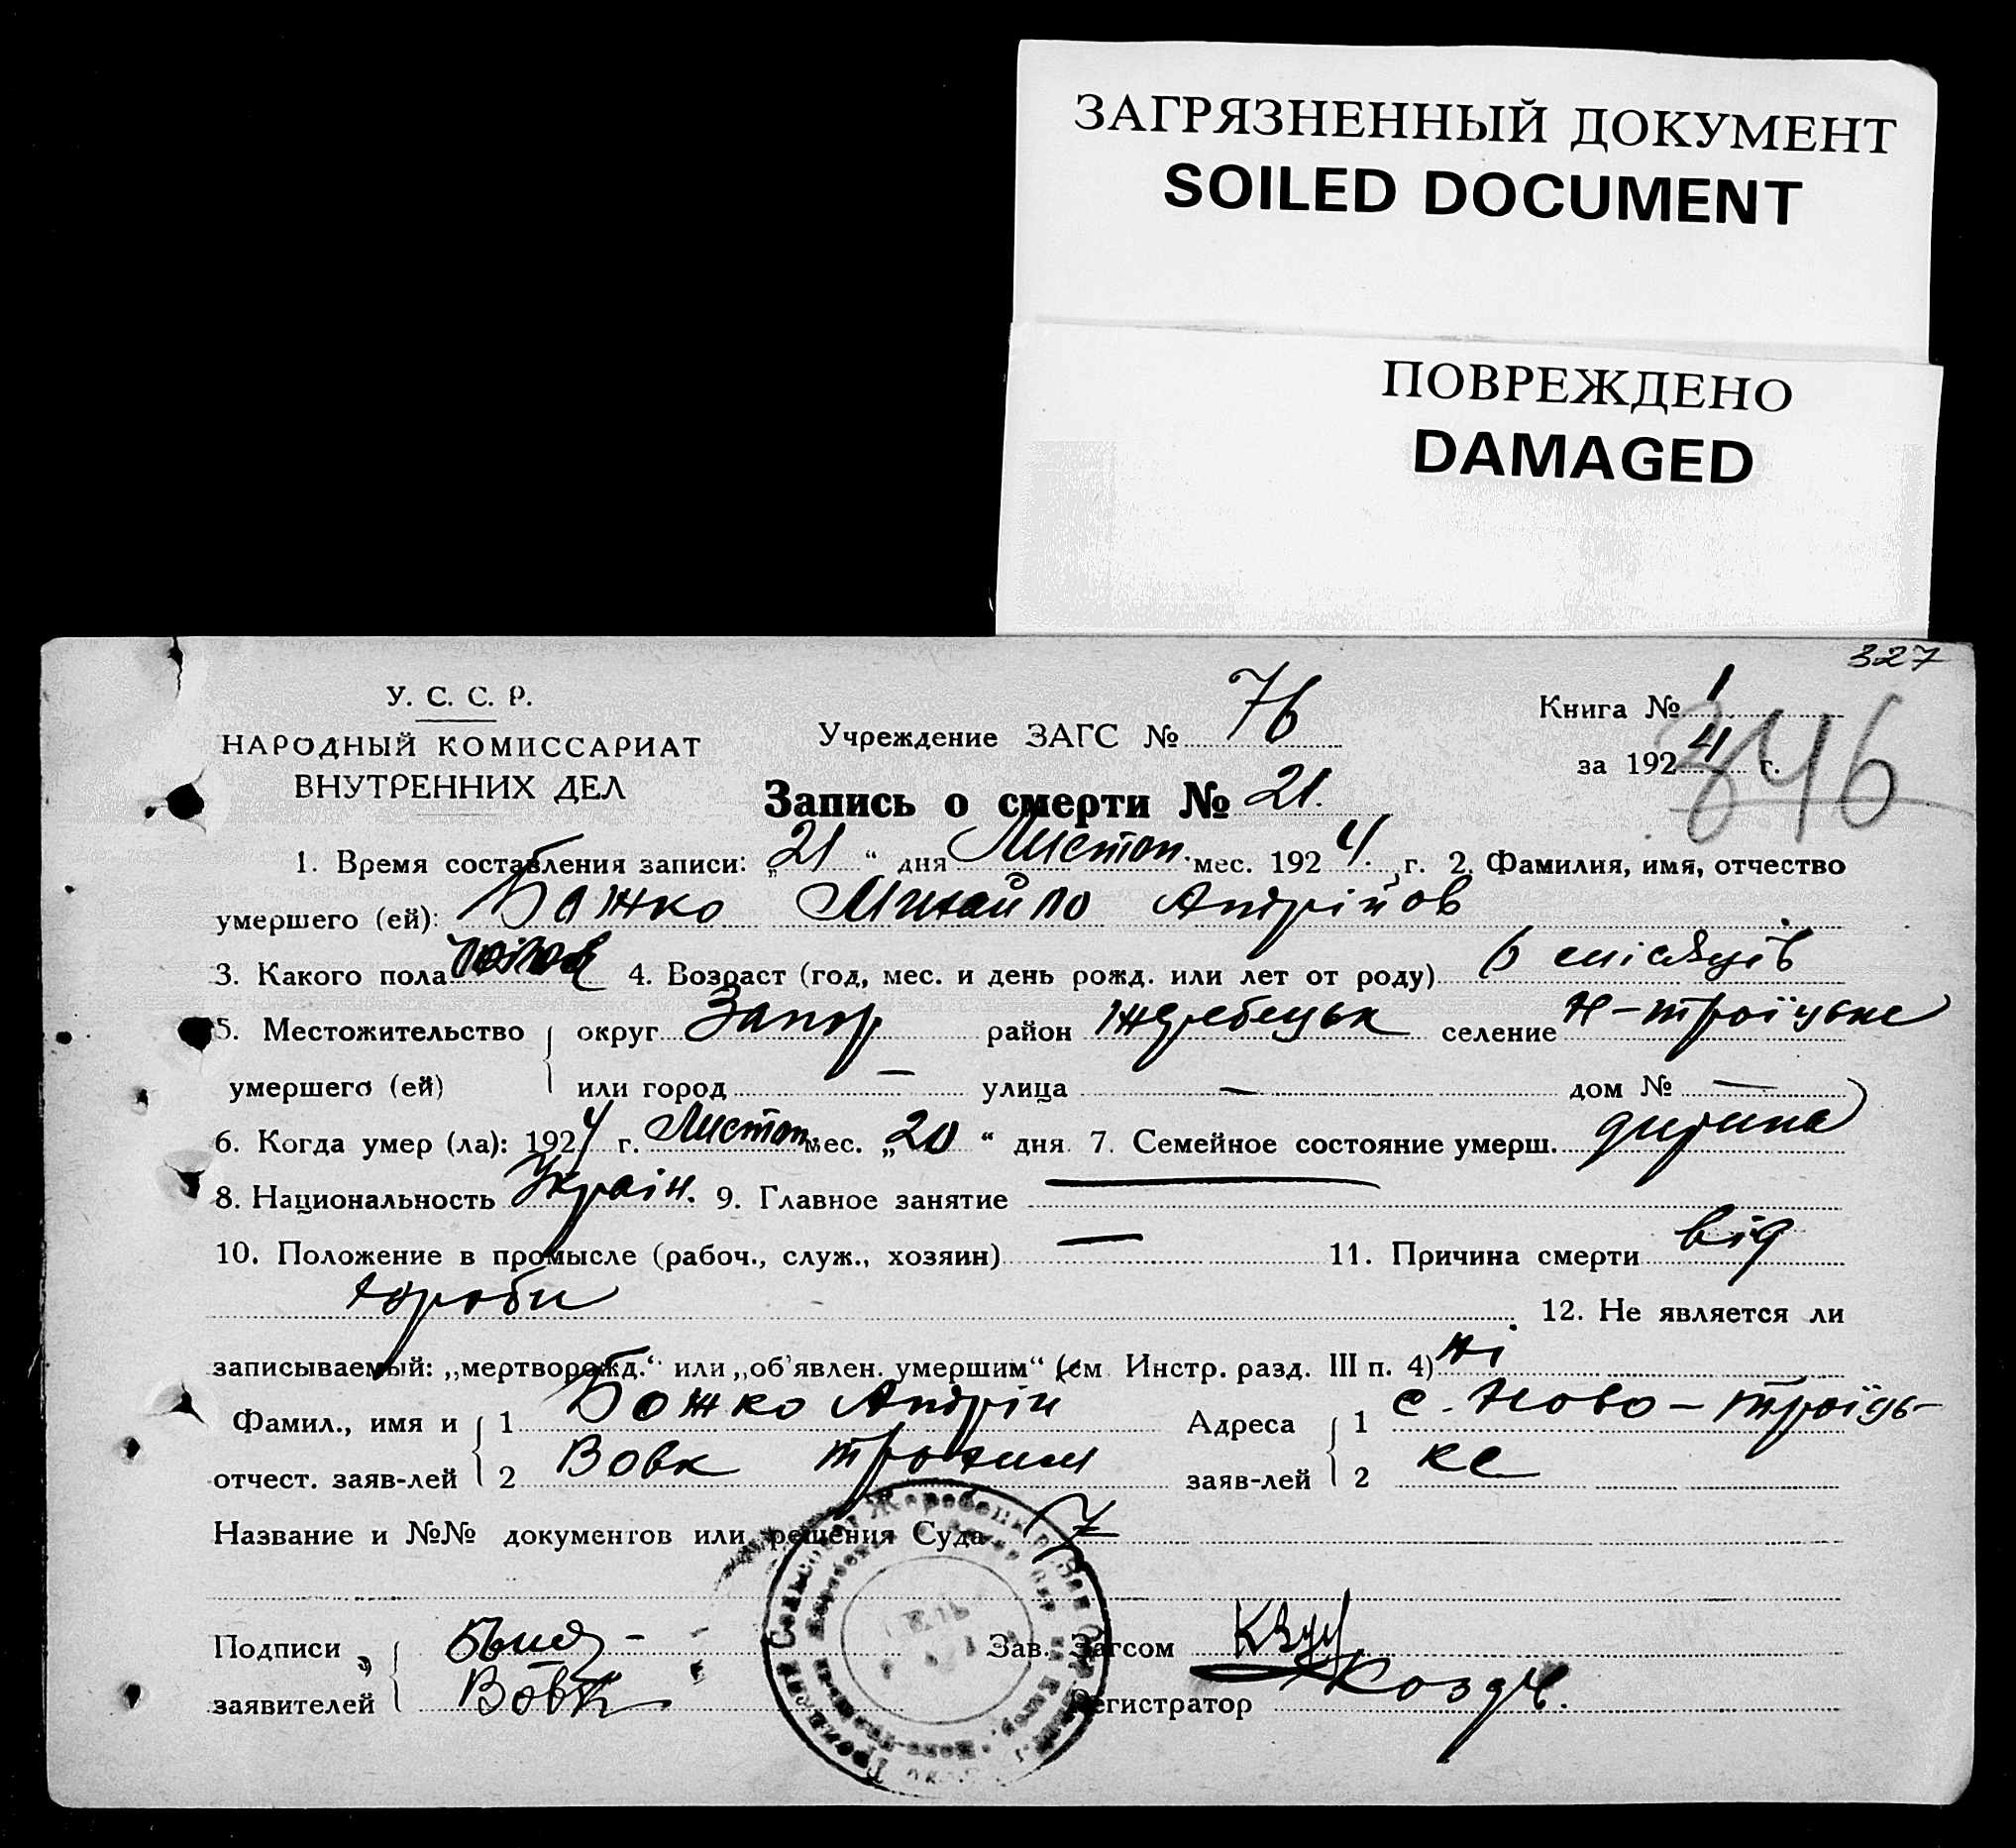 ЗАГРЯЗНЕННЫЙ ДОКУМЕНТ
SOILED DOCUMENT
ПОВРЕЖДЕНО
DAMAGED
327
У. С. С. Р.
НАРОДНЫЙ КОМИССАРИАТ
ВНУТРЕННИХ ДЕЛ
Учреждение ЗАГС № 76
Книга № 1
за 1924 г.
346
Запись о смерти № 21.
1. Время составления записи: „21“ дня Листоп. мес. 1924. г. 2. Фамилия, имя, отчество
умершего (ей): Божко Михайло Андрійов
3. Какого пола 4. Возраст (год, мес. и день рожд. или лет от роду) 6 місяців
5. Местожительство округ Запор район Жеребецьк селение Н-Троїцьке
умершего (ей) или город — улица — дом № —
6. Когда умер (ла): 1924 г. Листоп. мес. „20“ дня. 7. Семейное состояние умерш. дитина
8. Национальность Україн. 9. Главное занятие —
10. Положение в промысле (рабоч., служ., хозяин) — 11. Причина смерти від
хороби 12. Не является ли
записываемый: „мертворожд.“ или „об'явлен. умершим“ (см Инстр. разд. III п. 4) Ні
Фамил., имя и 1 Божко Андрій Адреса 1 с. Ново-Троїць-
отчест. заяв-лей 2 Вовк Трохим заяв-лей 2 ке
Название и №№ документов или решения Суда
Подписи Зав. Загсом
заявителей Вовк Регистратор